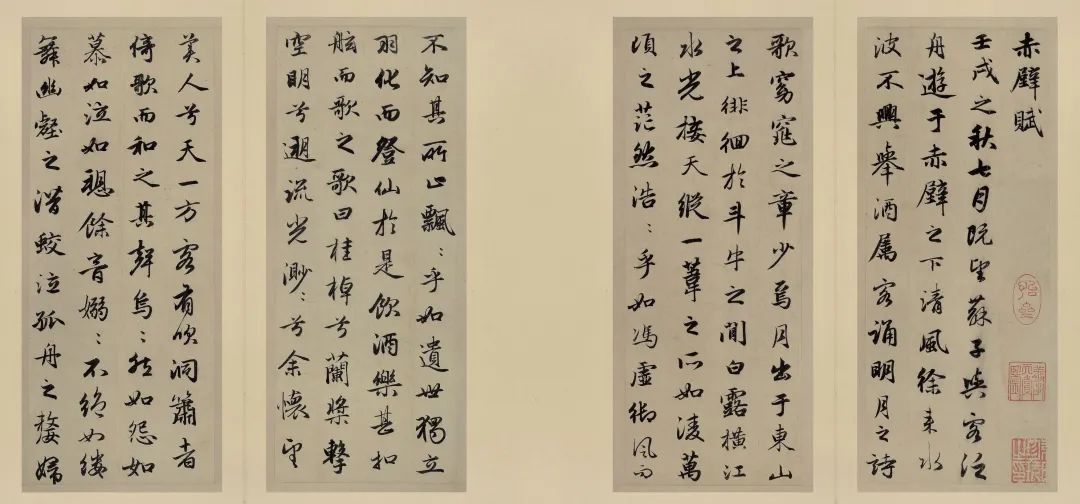 赤壁賦
壬戌之秋七月既望蘇子與客泛
舟遊于赤壁之下清風徐來水
波不興舉酒属客誦明月之詩
歌窈窕之章少焉月出于東山
之上徘徊於斗牛之間白露橫江
水光接天縱一葦之所如淩萬
頃之茫然浩〻乎如馮虛御風而
不知其所止飄〻乎如遺世獨立
羽化而登仙於是飲酒樂甚扣
舷而歌之歌曰桂棹兮蘭槳擊
空明兮遡流光渺〻兮余懷望
美人兮天一方客有吹洞簫者
倚歌而和之其聲烏〻然如怨如
慕如泣如愬餘音嫋〻不絕如縷
舞幽壑之潛蛟泣孤舟之嫠婦